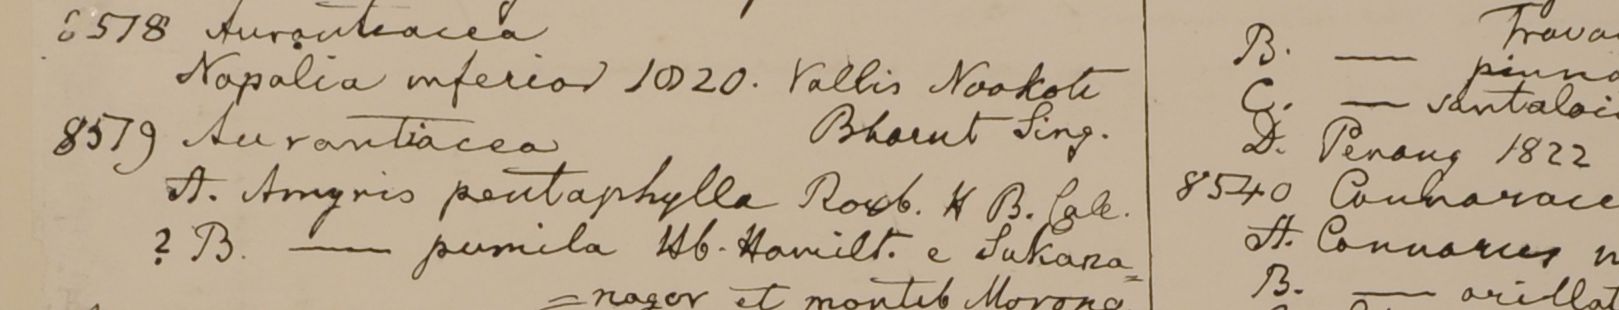 8518 Aurantiacea
Napalia inferior 1820. Vallis Nookote
Bharut Sing.
8519 Aurantiacea
A. Amyris pentaphylla Roxb. H B. Calc.
? B. — pumila Hb. Hamilt. e Sukana=
=nagor et montib Morong
Trava
B. — pinna
C. — santaloi
D. Penang 1822
8540 Connarace
A. Connarus n
B. — arillat